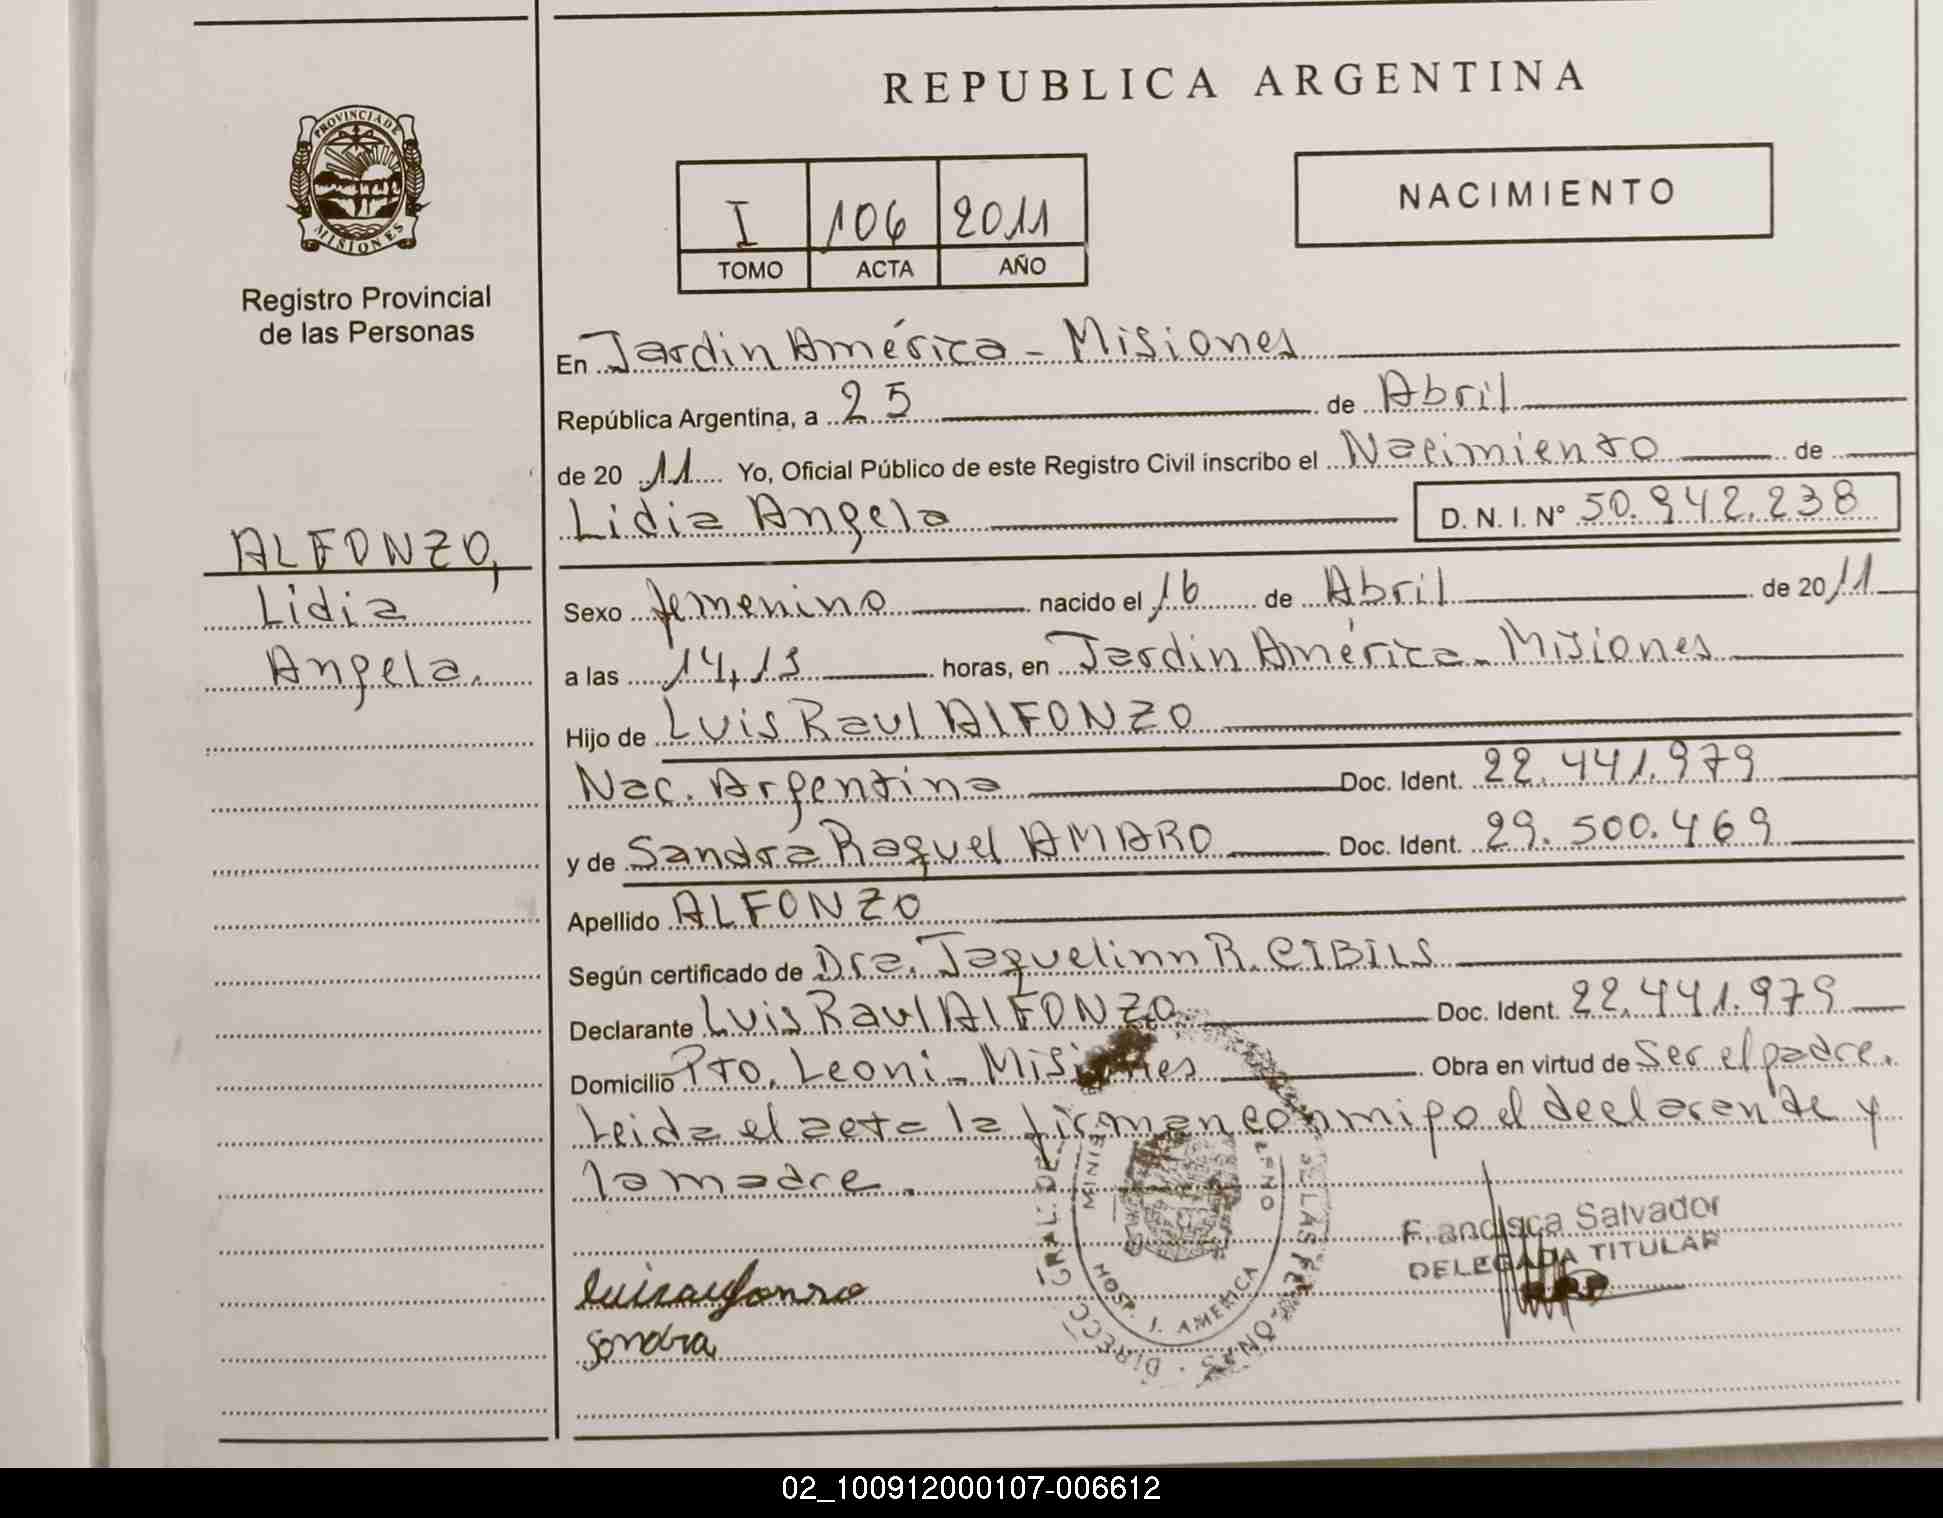 REPUBLICA ARGENTINA
PROVINCIA DE
MISIONES
Registro Provincial
de las Personas
I 106 2011
TOMO ACTA AÑO
NACIMIENTO
En Jardin América - Misiones
República Argentina, a 25 de Abril
de 20 11 Yo, Oficial Público de este Registro Civil inscribo el Nacimiento de
Lidia Angela D. N. I. Nº 50.942.238
ALFONZO,
Lidia
Angela.
Sexo femenino nacido el 16 de Abril de 20 11
a las horas, en Jardin América - Misiones
Hijo de Luis Raul AlFONZO
Nac. Argentina Doc. Ident. 22.441.979
y de Sandra Raquel AMARO Doc. Ident. 29.500.469
Apellido ALFONZO
Según certificado de Dra. Jaquelinn R. CIBILS
Declarante Luis Raul AlFONZO Doc. Ident. 22.441.979
Domicilio Pto. Leoni - Misiones Obra en virtud de Ser el padre.
Leida el acta la firman conmigo el declarante y
la madre.
Francisca Salvador
DELEGADA TITULAR
HOSP. J. AMERICA
Sandra
02_100912000107-006612